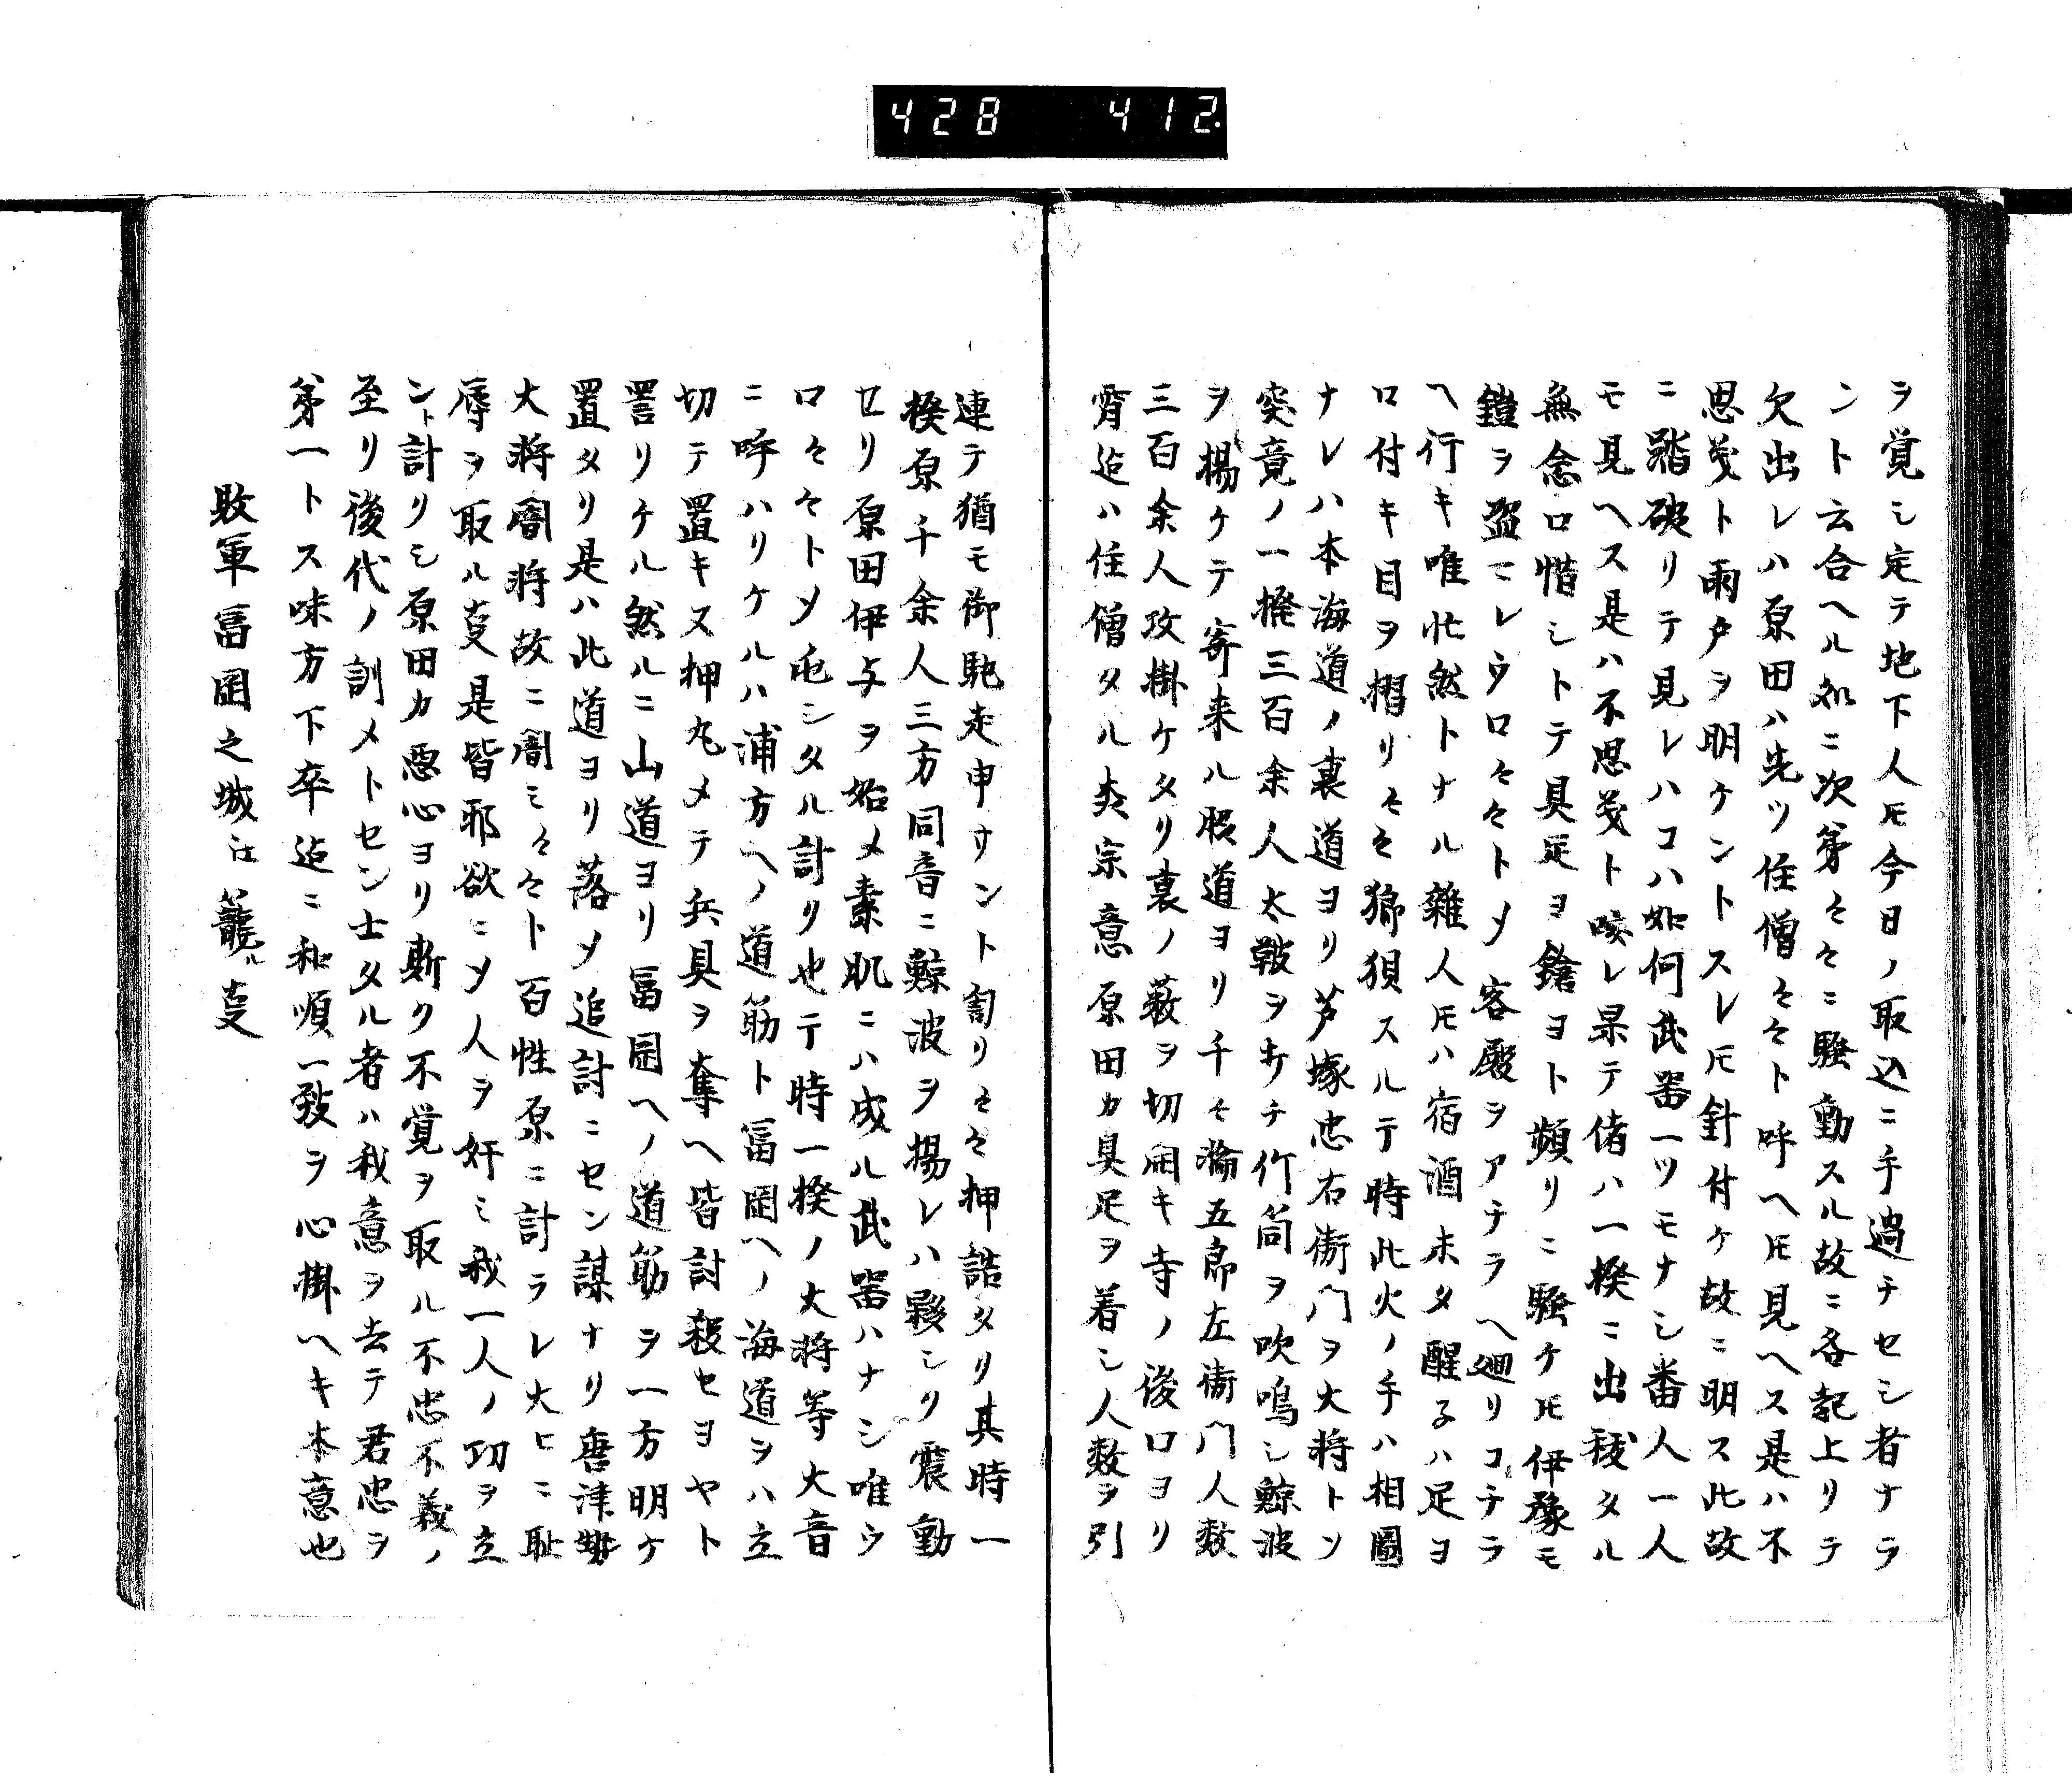 428 412.
ヲ覚シ定テ地下人𪜈今日ノ取込ニ手過チセシ者ナラ
ント云合ヘル処ニ次第々々ニ騒動スル故ニ各起上リテ
欠出レハ原田ハ先ツ住僧々々ト呼ヘ𪜈見ヘス是ハ不
思议ト雨戸ヲ明ケントスレ𪜈針付ケ故ニ明ス此故
ニ踏破リテ見レハコハ如何武器一ツモナシ番人一人
モ見ヘス是ハ不思议ト呟レ果テ偖ハ一揆ニ出抜タル
無念口惜シトテ具足ヨ鎗ヨト頻リニ騒ケ𪜈伊豫モ
鎧ヲ盗マレウロ々々トメ客殿ヲアチラヘ廻リコチラ
ヘ行キ唯忙然トナル雑人𪜈ハ宿酒未タ醒子ハ足ヨ
ロ付キ目ヲ摺リ々々狼狽スル㕝時此火ノ手ハ相圖
ナレハ本海道ノ裏道ヨリ芦塚忠右衛門ヲ大将トソ
突竟ノ一揆三百余人太皷ヲ打チ竹筒ヲ吹鳴シ鯨波
ヲ揚ケテ寄来ル脇道ヨリ千々輪五郎左衛門人数
三百余人攻掛ケタリ裏ノ薮ヲ切開キ寺ノ後口ヨリ
宵迠ハ住僧タル炎宗意原田カ具足ヲ着シ人数ヲ引
連テ猶モ御馳走申サント訇リ々々押詰タリ其時一
揆原千余人三方同音ニ鯨波ヲ揚レハ夥シリ震動
セリ原田伊与ヲ始メ素肌ニハ成ル武器ハナシ唯ウ
ロ々々トメ屯シタル計リ也㕝時一揆ノ大将等大音
ニ呼ハリケルハ浦方ヘノ道筋ト冨岡ヘノ海道ヲハ立
切テ置キヌ押丸メテ兵具ヲ奪ヘ皆討殺セヨヤト
詈リケル然ルニ山道ヨリ冨岡ヘノ道筋ヲ一方明ケ
置タリ是ハ此道ヨリ落ソ追討ニセン謀ナリ唐津勢
大将闇将故ニ闇ミ々々ト百性原ニ計ラレ大ヒニ耻
辱ヲ取ル㕝是皆邪欲ニソ人ヲ奸ミ我一人ノ功ヲ立
ント計リシ原田カ悪心ヨリ斯ク不覚ヲ取ル不忠不義ノ
至リ後代ノ訓メトセン士タル者ハ我意ヲ去テ君忠ヲ
第一トス味方下卒迠ニ和順一致ヲ心掛ヘキ本意也
敗軍冨岡之城江籠ル㕝